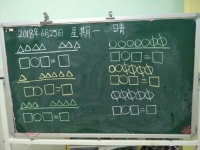 2018年6月25日 星期一 晴
□○□=□
□○□=□
□○□=□
□○□=□
□○□=□
□○□=□